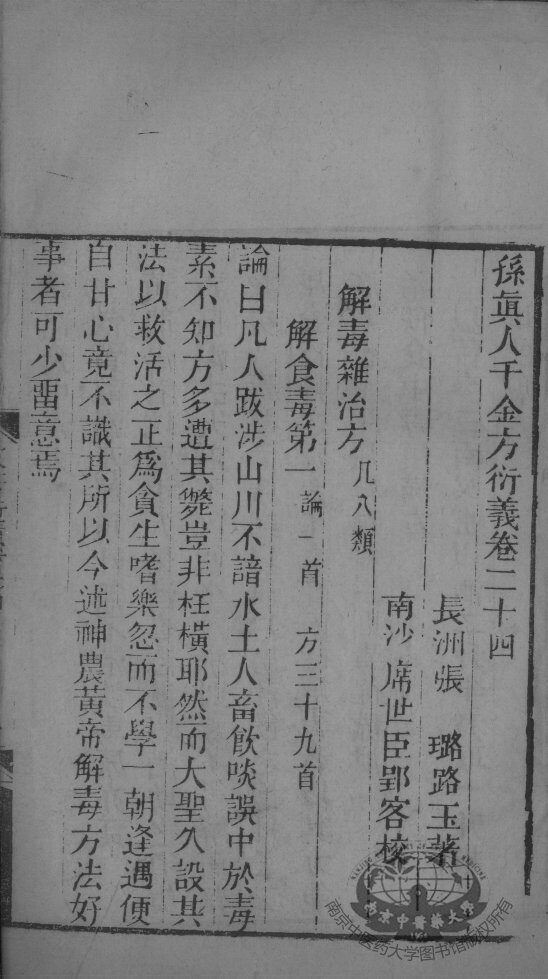 孫眞人千金方衍義卷二十四
長洲張 璐路玉著
南沙席世臣郢客校
解毒雜治方 凡八類
解食毒第一 論一首 方三十九首
論曰凡人跋涉山川不諳水土人畜飲啖誤中於毒
素不知方多遭其斃豈非枉橫耶然而大聖久設其
法以救活之正爲貪生嗜樂忽而不學一朝逢遇便
自甘心竟不識其所以今述神農黃帝解毒方法好
事者可少畱意焉
南京中醫藥大學
南京中医药大学图书馆版权所有